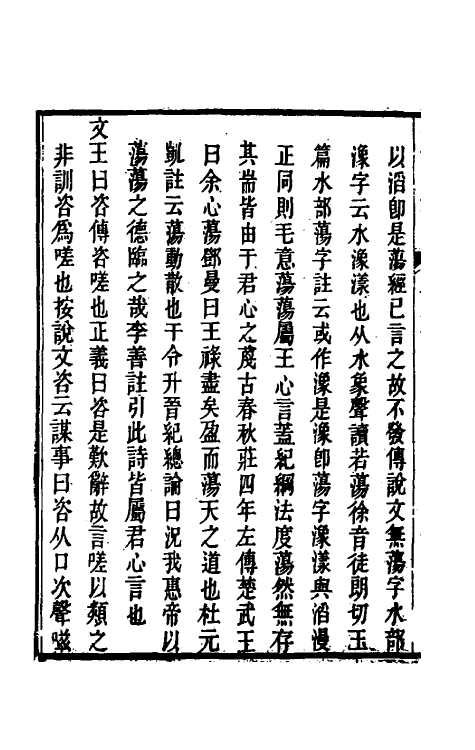 以滔卽是蕩經已言之故不發傳說文無蕩字水部
潒字云水潒瀁也从水象聲讀若蕩徐音徒朗切玉
篇水部蕩字註云或作潒是潒卽蕩字潒瀁與滔漫
正同則毛意蕩蕩屬王心言蓋紀綱法度蕩然無存
其耑皆由于君心之蔑古春秋莊四年左傳楚武王
曰余心蕩鄧曼曰王祿盡矣盈而蕩天之道也杜元
凱註云蕩動散也干令升晉紀總論曰況我惠帝以
蕩蕩之德臨之哉李善註引此詩皆屬君心言也
文王曰咨傳咨嗟也正義曰咨是歎辭故言嗟以類之
非訓咨爲嗟也按說文咨云謀事曰咨从口次聲嗞